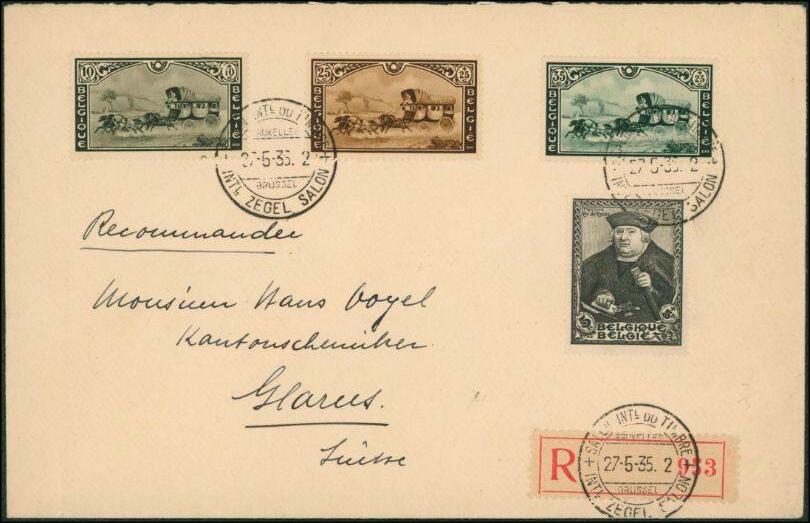 10 60
BELGIQUE BELGIË
25 25
BELGIQUE BELGIË
35 25
BELGIQUE BELGIË
INTL DU
BRUXELLES
27-5-35. 2
BRUSSEL
INTL ZEGEL SALON
27-5-35. 2
BRUSSEL
INTL ZEGEL SALON
Recommandée
Monsieur Hans Vogel
Kantonschemiker
Glarus.
Suisse
BELGIQUE
BELGIË
SALON INTL DU TIMBRE
BRUXELLES
27-5-35. 2
BRUSSEL
INTL ZEGEL SALON
R 953